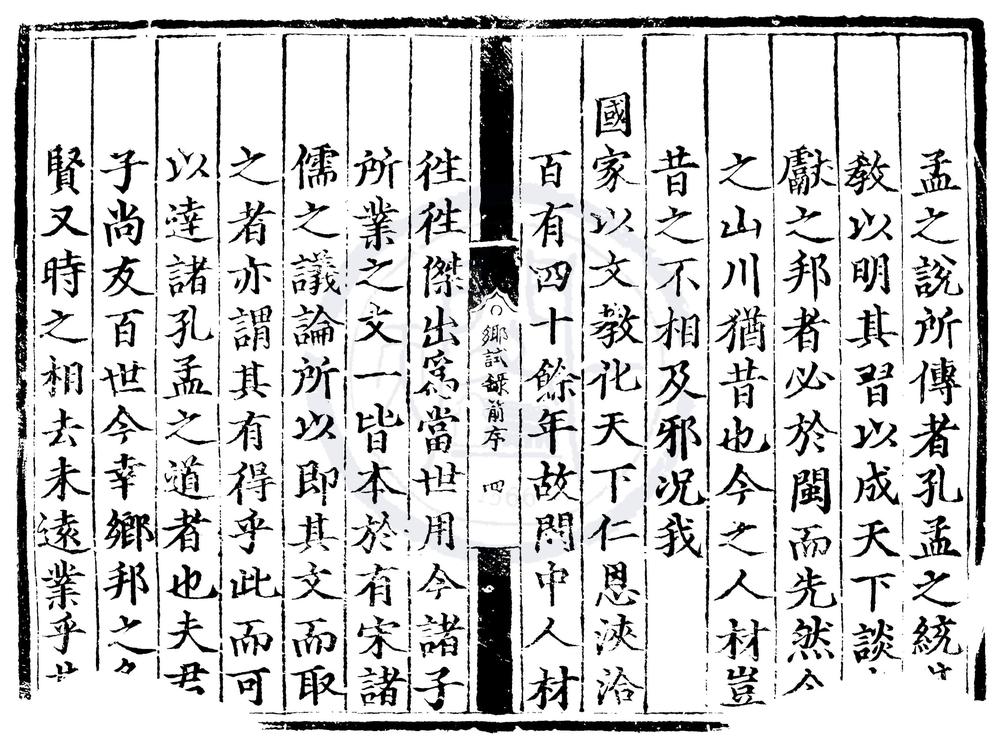 孟之說所傳者孔孟之統
教以明其習以成天下談
獻之邦者必於閩而先然
之山川猶昔也今之人材豈
昔之不相及邪况我
國家以文教化天下仁恩浹洽
百有四十餘年故閩中人材
鄉試錄前序 四
徃徃傑出爲當世用今諸子
所業之文一皆本於有宋諸
儒之議論所以即其文而取
之者亦謂其有得乎此而可
以達諸孔孟之道者也夫君
子尚友百世今幸鄉邦之
賢又時之相去未遠業乎